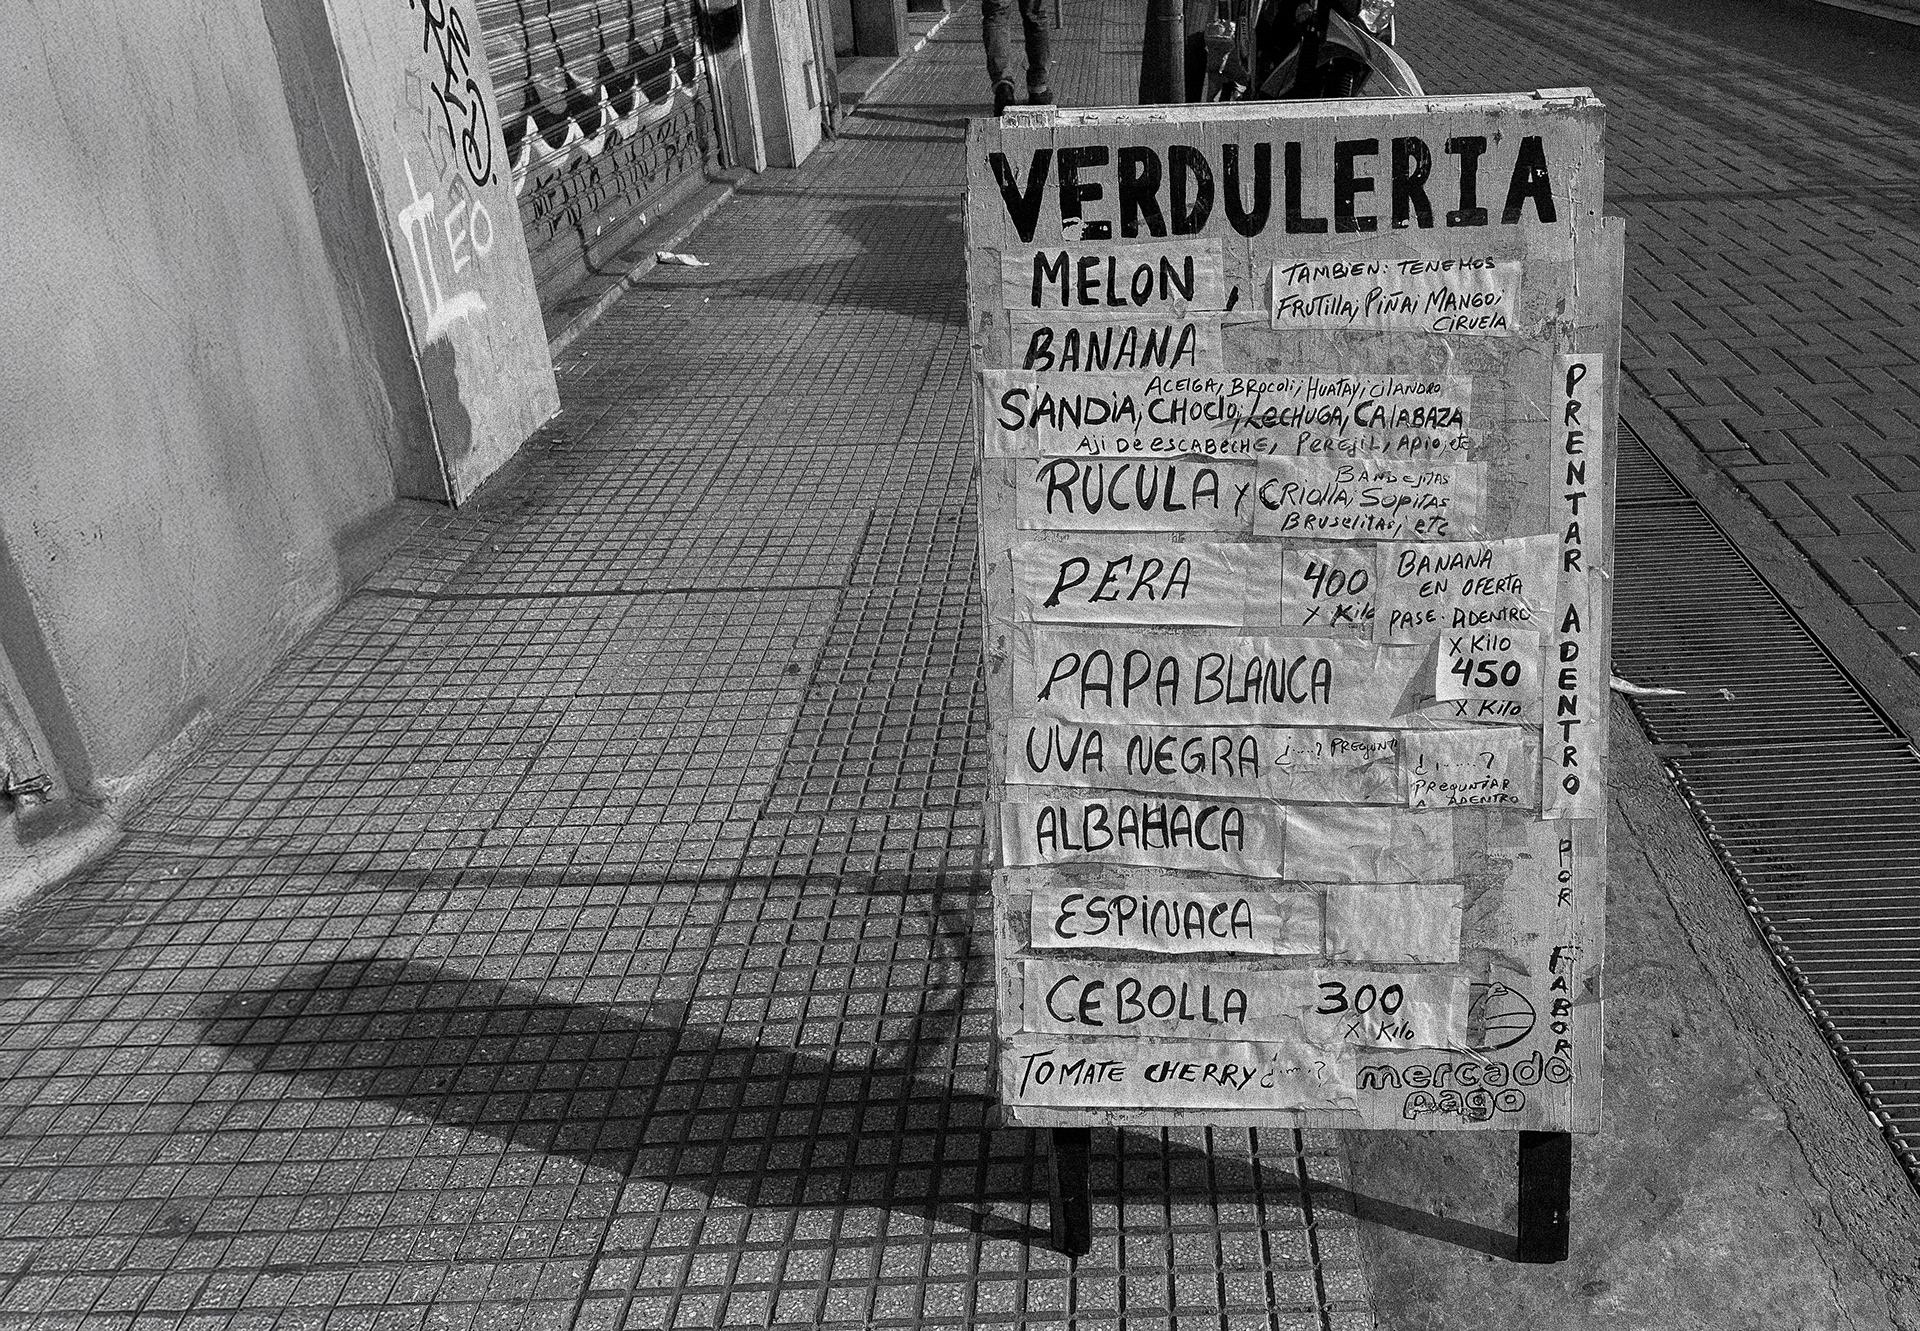 TEO
VERDULERIA
MELON,
TAMBIEN: TENEMOS
FRUTILLA; PIÑA; MANGO;
CIRUELA
BANANA
ACELGA, BROCOLI; HUATAY; CILANDRO
SANDIA, CHOCLO; LECHUGA, CALABAZA
AJI DE ESCABECHE, PEREJIL, APIO, etc
RUCULA Y
BANDEJITAS
CRIOLLA, SOPITAS
BRUSELITAS; etc
PERA
400
X Kilo
BANANA
EN OFERTA
PASE. ADENTRO
PAPA BLANCA
X Kilo
450
X Kilo
UVA NEGRA ¿....?
¿......?
PREGUNTAR
A ADENTRO
ALBAHACA
ESPINACA
CEBOLLA
300
X Kilo
TOMATE CHERRY ¿....?
mercado
pago
PRENTAR ADENTRO
POR FABOR